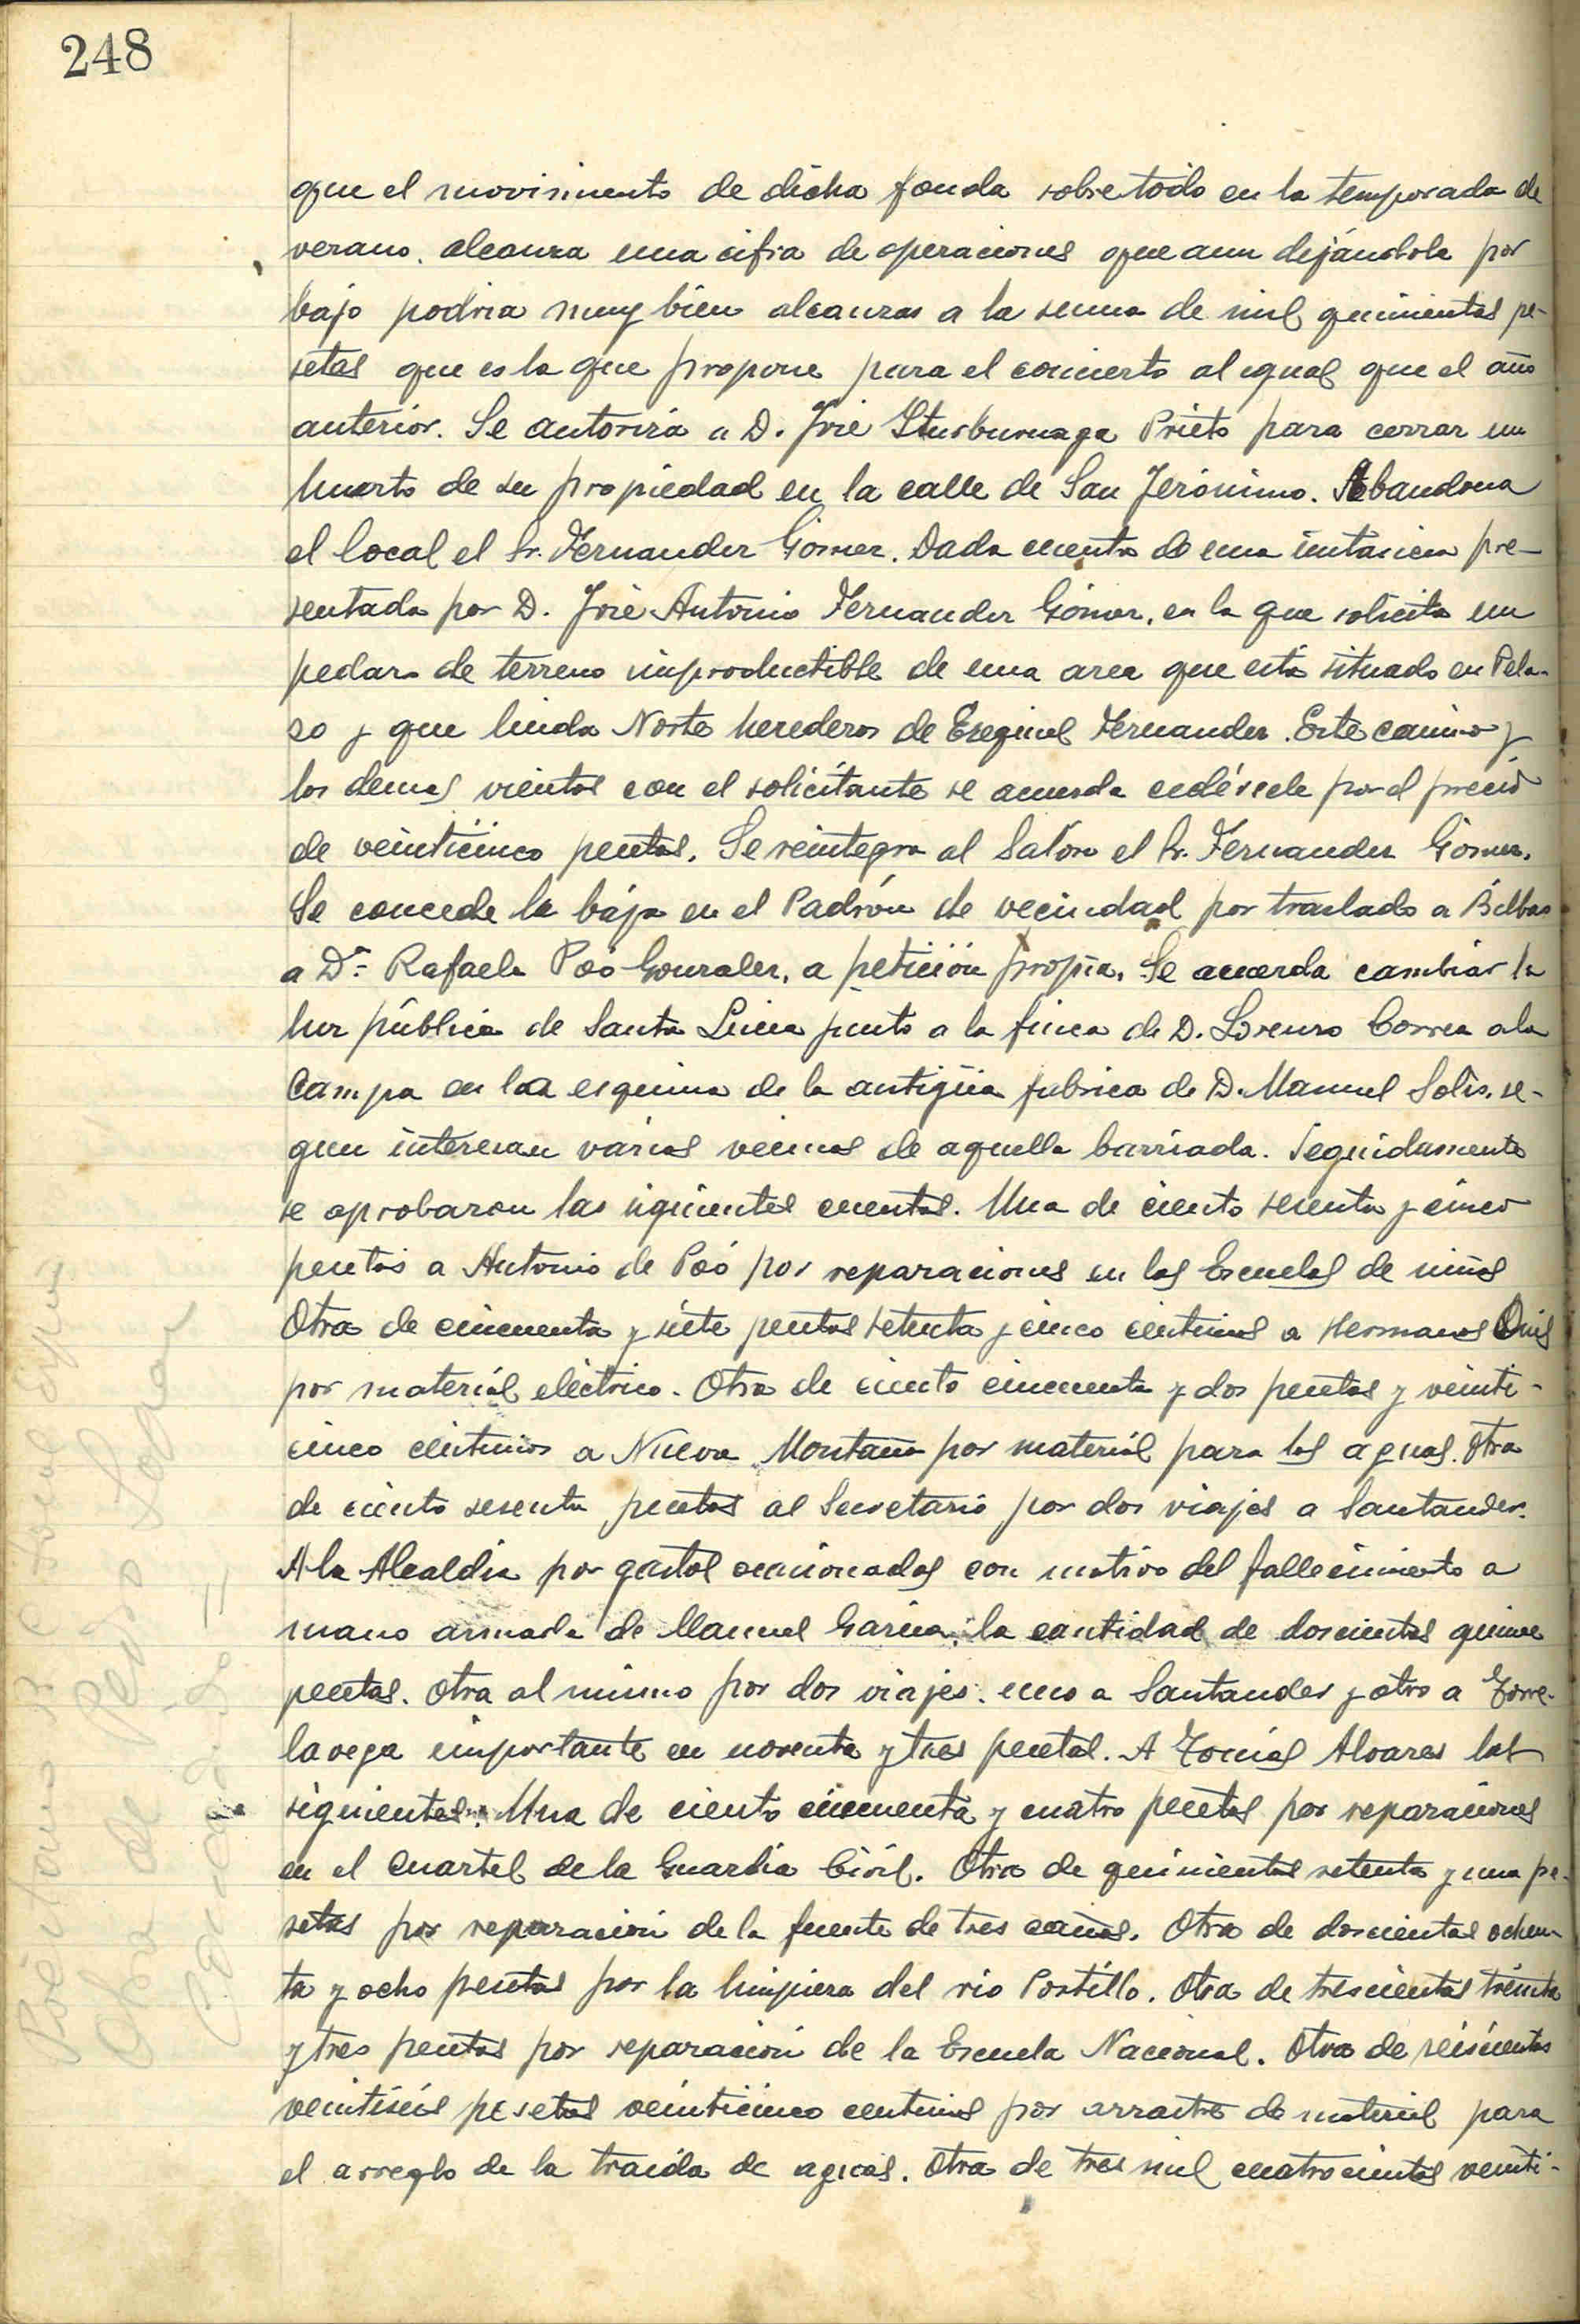 248
que el movimiento de dicha fonda sobre todo en la temporada de
verano, alcanza una cifra de operaciones que aun dejándola por
bajo podria muy bien alcanzar a la suma de mil quinientas pe-
setas que es la que propone para el concierto al igual que el año
anterior. Se autoriza a D. José Iturburuaga Prieto para cerrar un
huerto de su propiedad en la calle de San Jerónimo. Abandona
el local el Sr. Fernandez Gómez. Dada cuenta de una intancia pre-
sentada por D. José Antonio Fernandez Gómez, en la que solicita un
pedazo de terreno improductible de una area que está situado en
y que linda Norte herederos de Ezequiel Fernandez. Este camino y
los demas vientos con el solicitante se acuerda cedérsele por el precio
de veinticinco pesetas. Se reintegra al Salón el Sr. Fernandez Gómez.
Se concede la bája en el Padrón de vecindad por traslado a Bilbao
a Dª Rafaela Poo Gonzalez, a petición propia. Se acuerda cambiar la
luz pública de Santa Lucia junto a la finca de D. Lorenzo Correa a la
Campa en la esquina de la antigüa fabrica de D. Manuel Solis, se-
gun interesan várias vecinas de aquella barriada. Seguidamente
se aprobaron las siguientes cuentas. Una de ciento sesenta y cinco
pesetas a Antonio de Poó por reparaciones en las Escuelas de niñas
Otra de cincuenta y siete pesetas setenta y cinco céntimos a Hermanos
por material eléctrico. Otra de ciento cincuenta y dos pesetas y veinti-
cinco céntimos a Nueva Montaña por material para las aguas. Otra
de ciento sesenta pesetas al Secretario por dos viajes a Santander.
A la Alcaldia por gastos ocasionados con motivo del fallecimiento a
mano armada de Manuel Garcia, la cantidad de doscientas quince
pesetas. Otra al mismo por dos viajes, uno a Santander y otro a Torre-
lavega importante en noventa y tres pesetas. A Tomás Alvarez las
siguientes: Una de ciento cincuenta y cuatro pesetas por reparaciones
en el Cuartel de la Guardia Civil. Otra de quinientas setenta y una pe-
setas por reparación de la fuente de tres caños. Otra de doscientas ochen-
ta y ocho pesetas por la limpieza del rio Portillo. Otra de trescientas treinta
y tres pesetas por reparación de la Escuela Nacional. Otra de seiscientas
veintiséis pesetas veinticinco centimos por arrastre de material para
el arreglo de la traida de aguas. Otra de tres mil cuatrocientas veinti-
Obra de Pedro